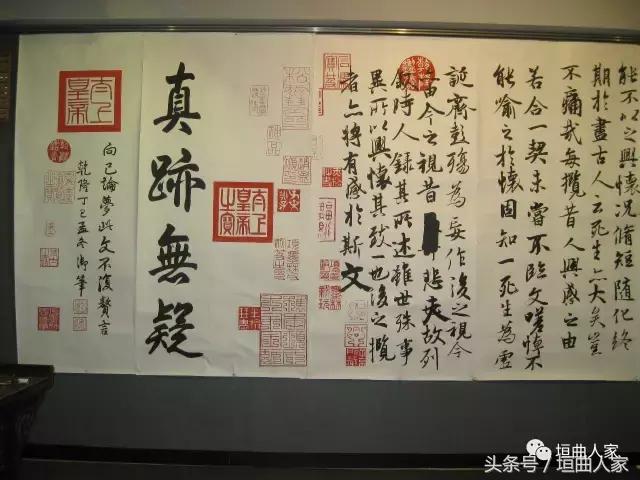 能不以之興懷況脩短隨化終
期於盡古人云死生亦大矣豈
不痛哉每攬昔人興感之由
若合一契未嘗不臨文嗟悼不
能喻之於懷固知一死生為虛
誕齊彭殤為妄作後之視今
由今之視昔悲夫故列
敘時人錄其所述雖世殊事
異所以興懷其致一也後之攬
者亦將有感於斯文
太上皇帝之寶
真跡無疑
太上皇帝
向已論夢此文不復贅言
乾隆丁巳孟冬御筆
垣曲人家
头条号/垣曲人家